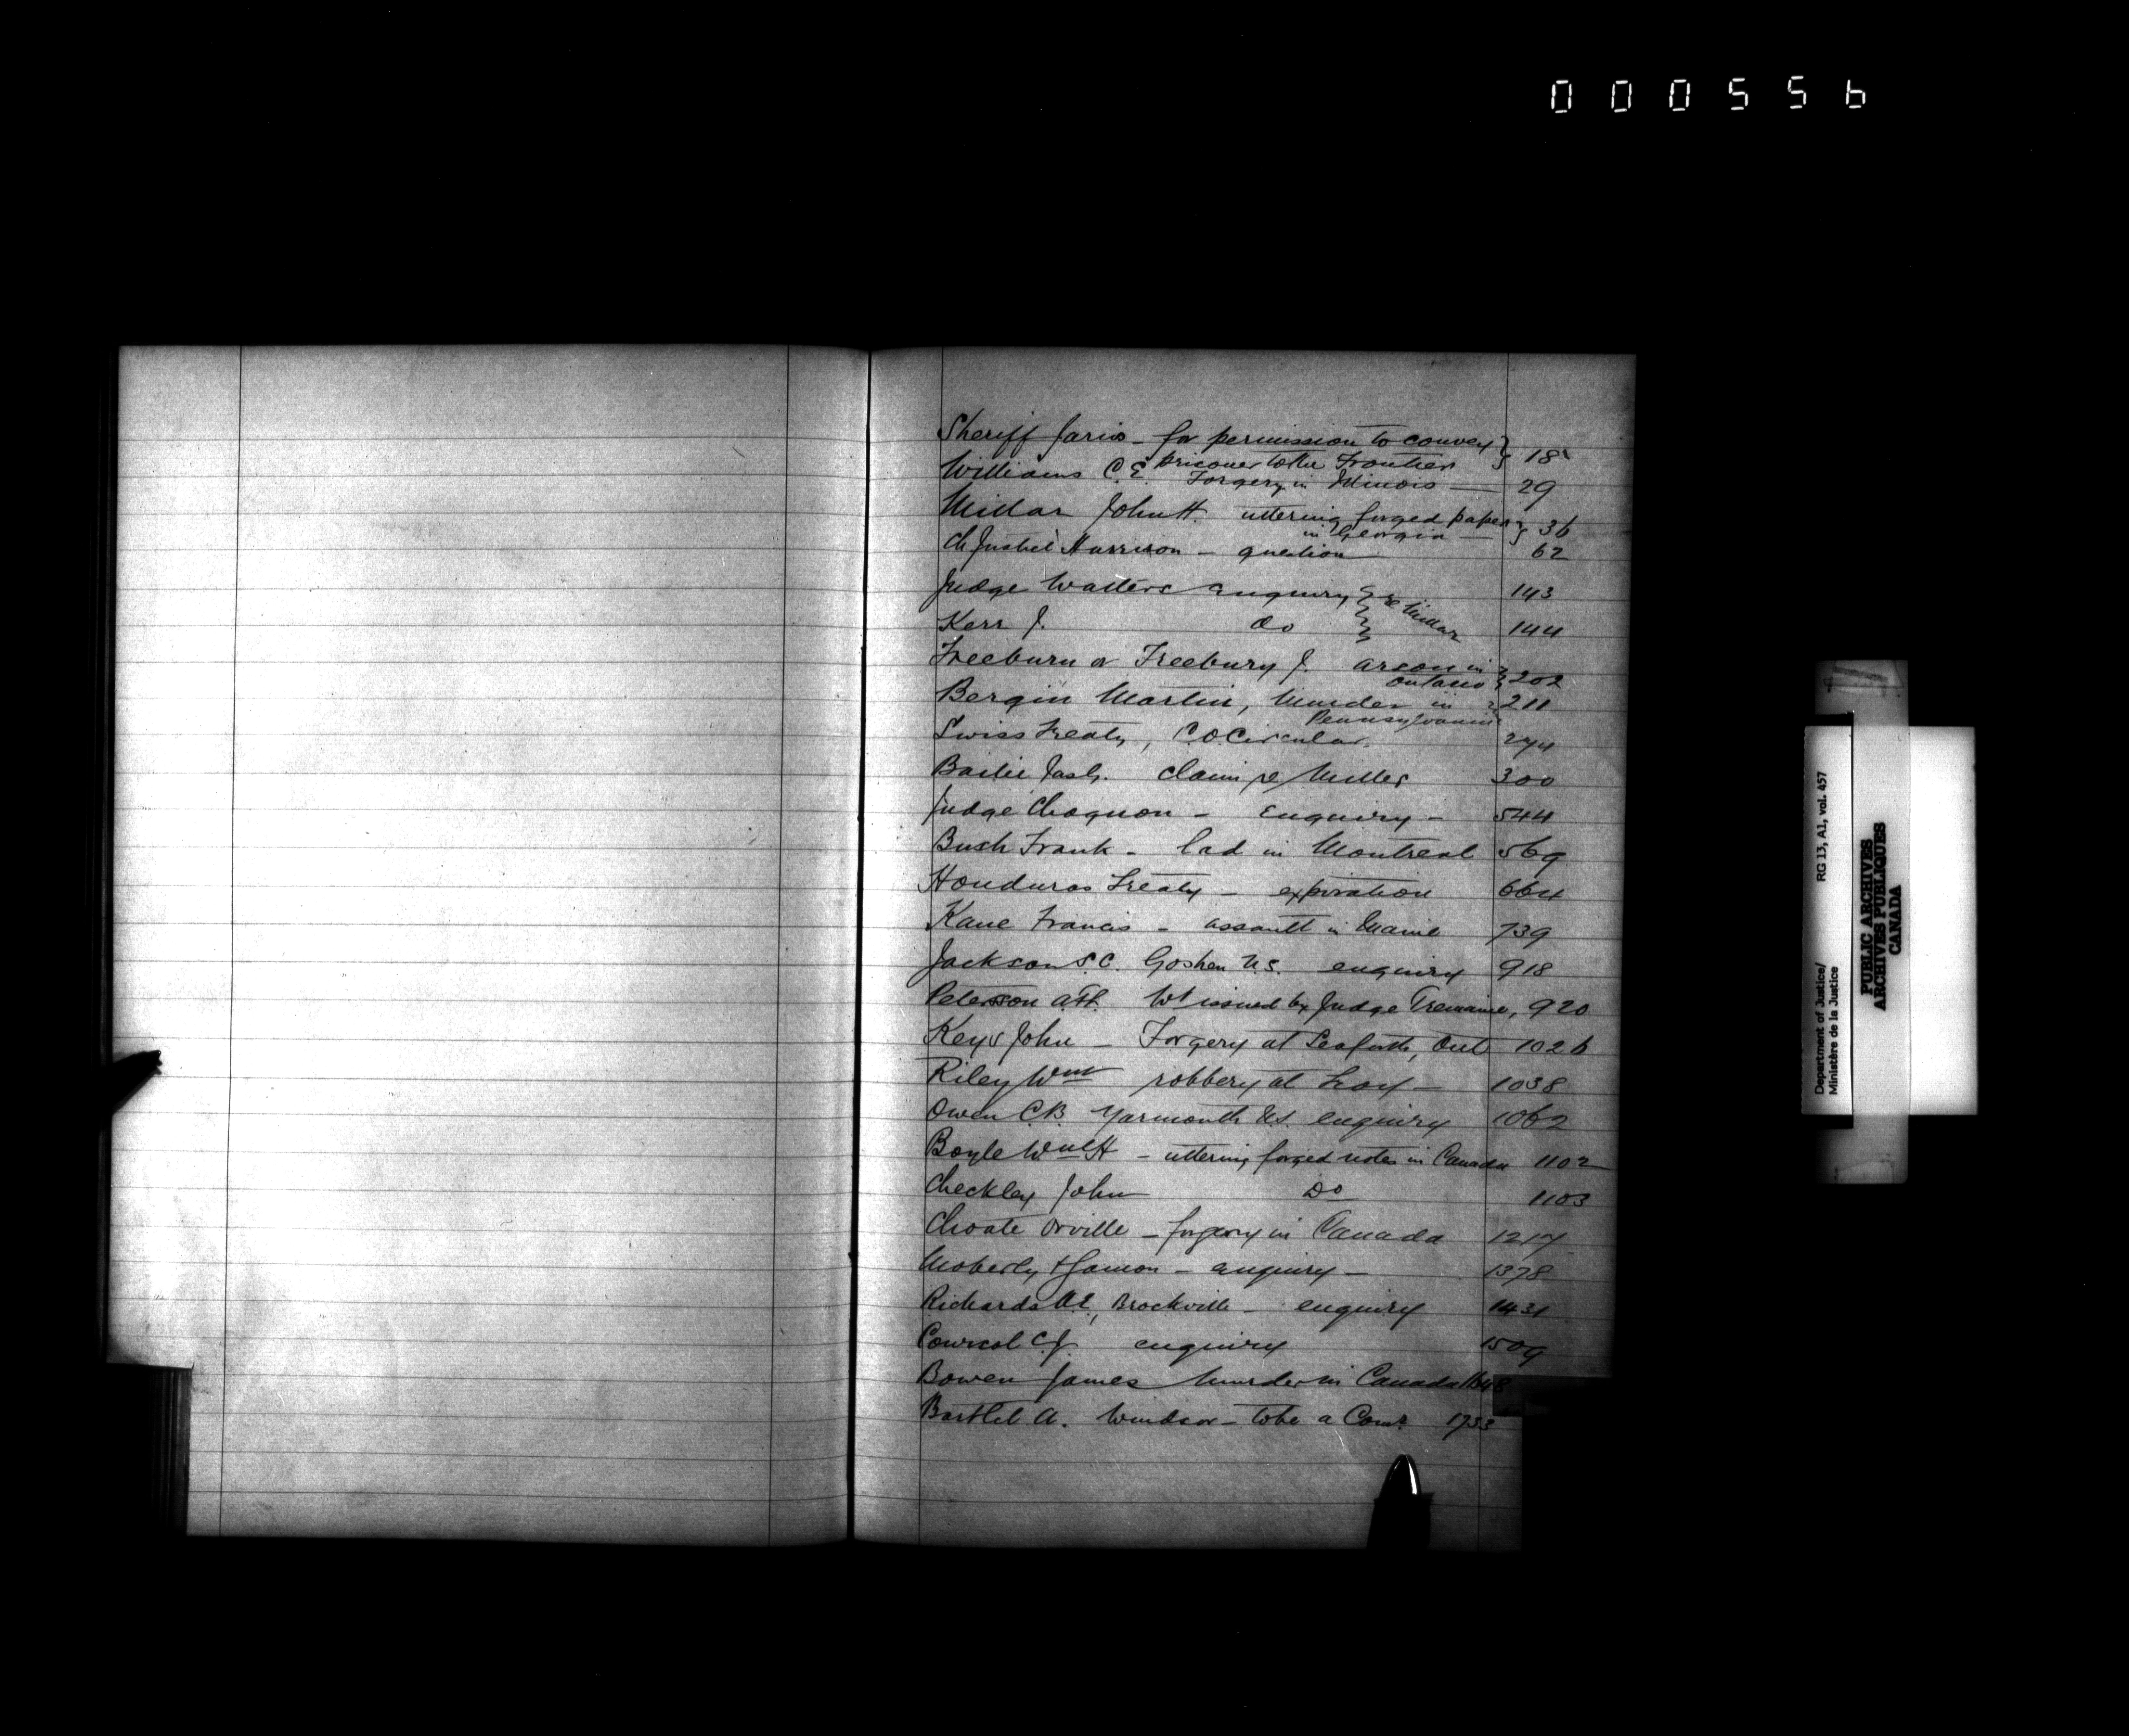 000556
Sheriff Jarvis - for permission to convey } 18
prisoner to the Frontier
Williams C.E. Forgery in Illinois — 29
Millar John H. uttering forged paper } 36
in Georgia —
Ch Justice Harrison - question 62
Judge Walters enquiry } re Millar 143
Kerr J. do } 144
Freeburn or Freebury J. arson in } 202
Ontario
Bergin Martin, Murder in 211
Pennsylvania
Swiss Treaty, C.O. Circular. 274
Bailie Jas. claim re Miller 300
Judge Choquon - Enquiry - 544
Bush Frank - lad in Montreal 569
Honduras Treaty - expiration 664
Kane Francis - assault in Maine 739
Jackson S.C. Goshen U.S. enquiry 918
Peterson Wt issued by Judge Tremaine, 920
Keys John - Forgery at Seaforth, Ont 1026
Riley Wm robbery at Troy - 1038
Owen C.B. Yarmouth N.S. enquiry 1062
Boyle Wm H - uttering forged notes in Canada 1102
Checkley John Do 1103
Choate Orville - forgery in Canada 1217
Moberly & Gamon - enquiry - 1378
Richards A.E, Brockville - enquiry 1431
Coursol C.J. enquiry 1509
Bowen James Murder in Canada 1648
Bartlet A. Windsor - to be a Comr. 1753
Department of Justice/ RG 13, A1, vol. 457
Ministère de la Justice
PUBLIC ARCHIVES
ARCHIVES PUBLIQUES
CANADA